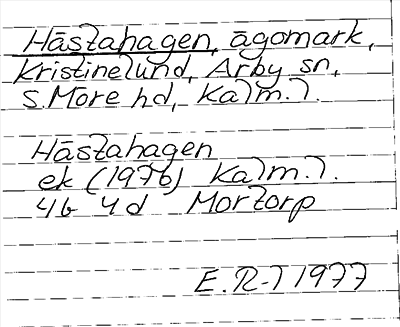 Hästahagen, ägomark,
Kristinelund, Arby sn,
S. Möre hd, Kalm. l.
Hästahagen
ek (1976) Kalm. l.
4b 4d Mortorp
E. R-l 1977